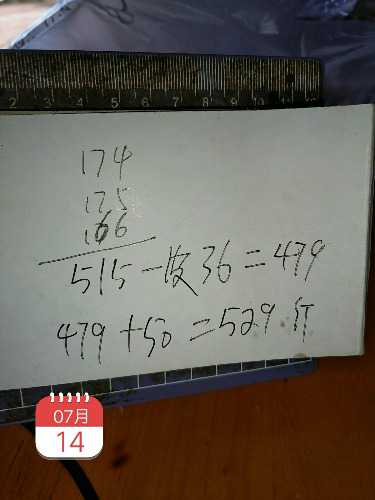 2 3 4 5 6 7 8 9 10
174
175
166
515-皮36=479
479+50=529斤
07月
14